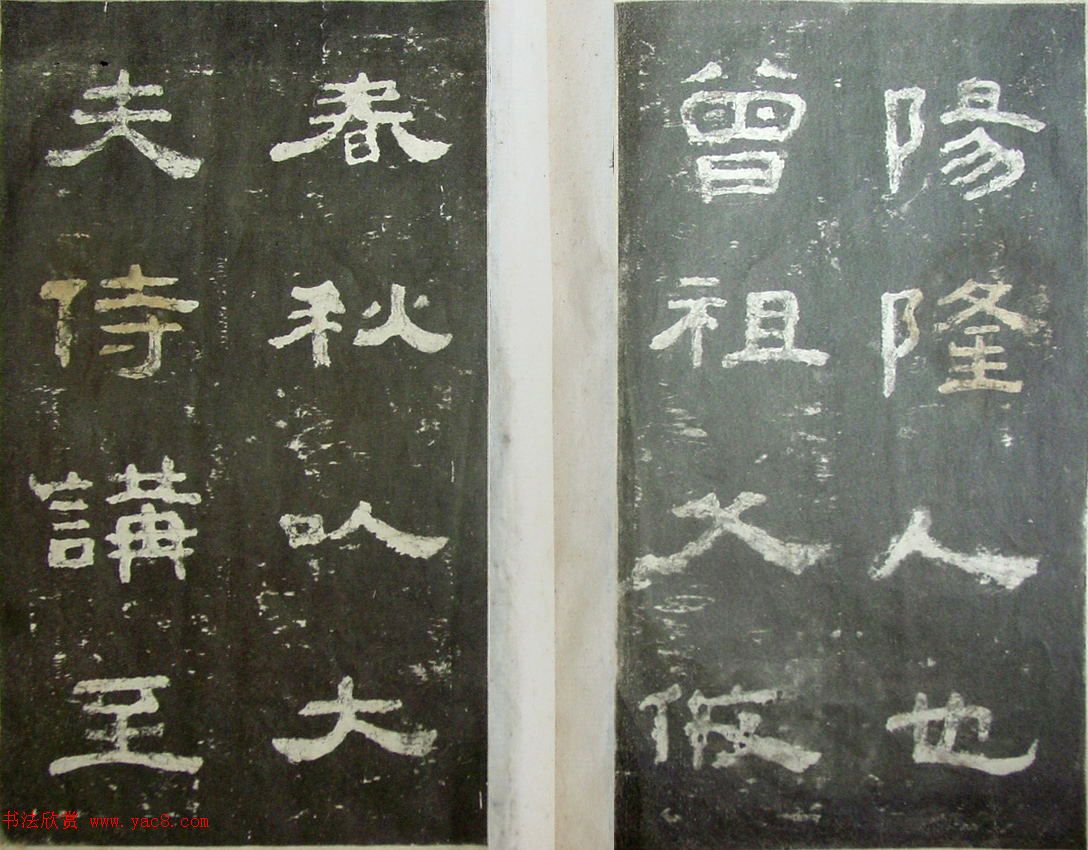 陽隆人也
曾祖父攸
春秋以大
夫侍講至
书法欣赏 www.yac8.com